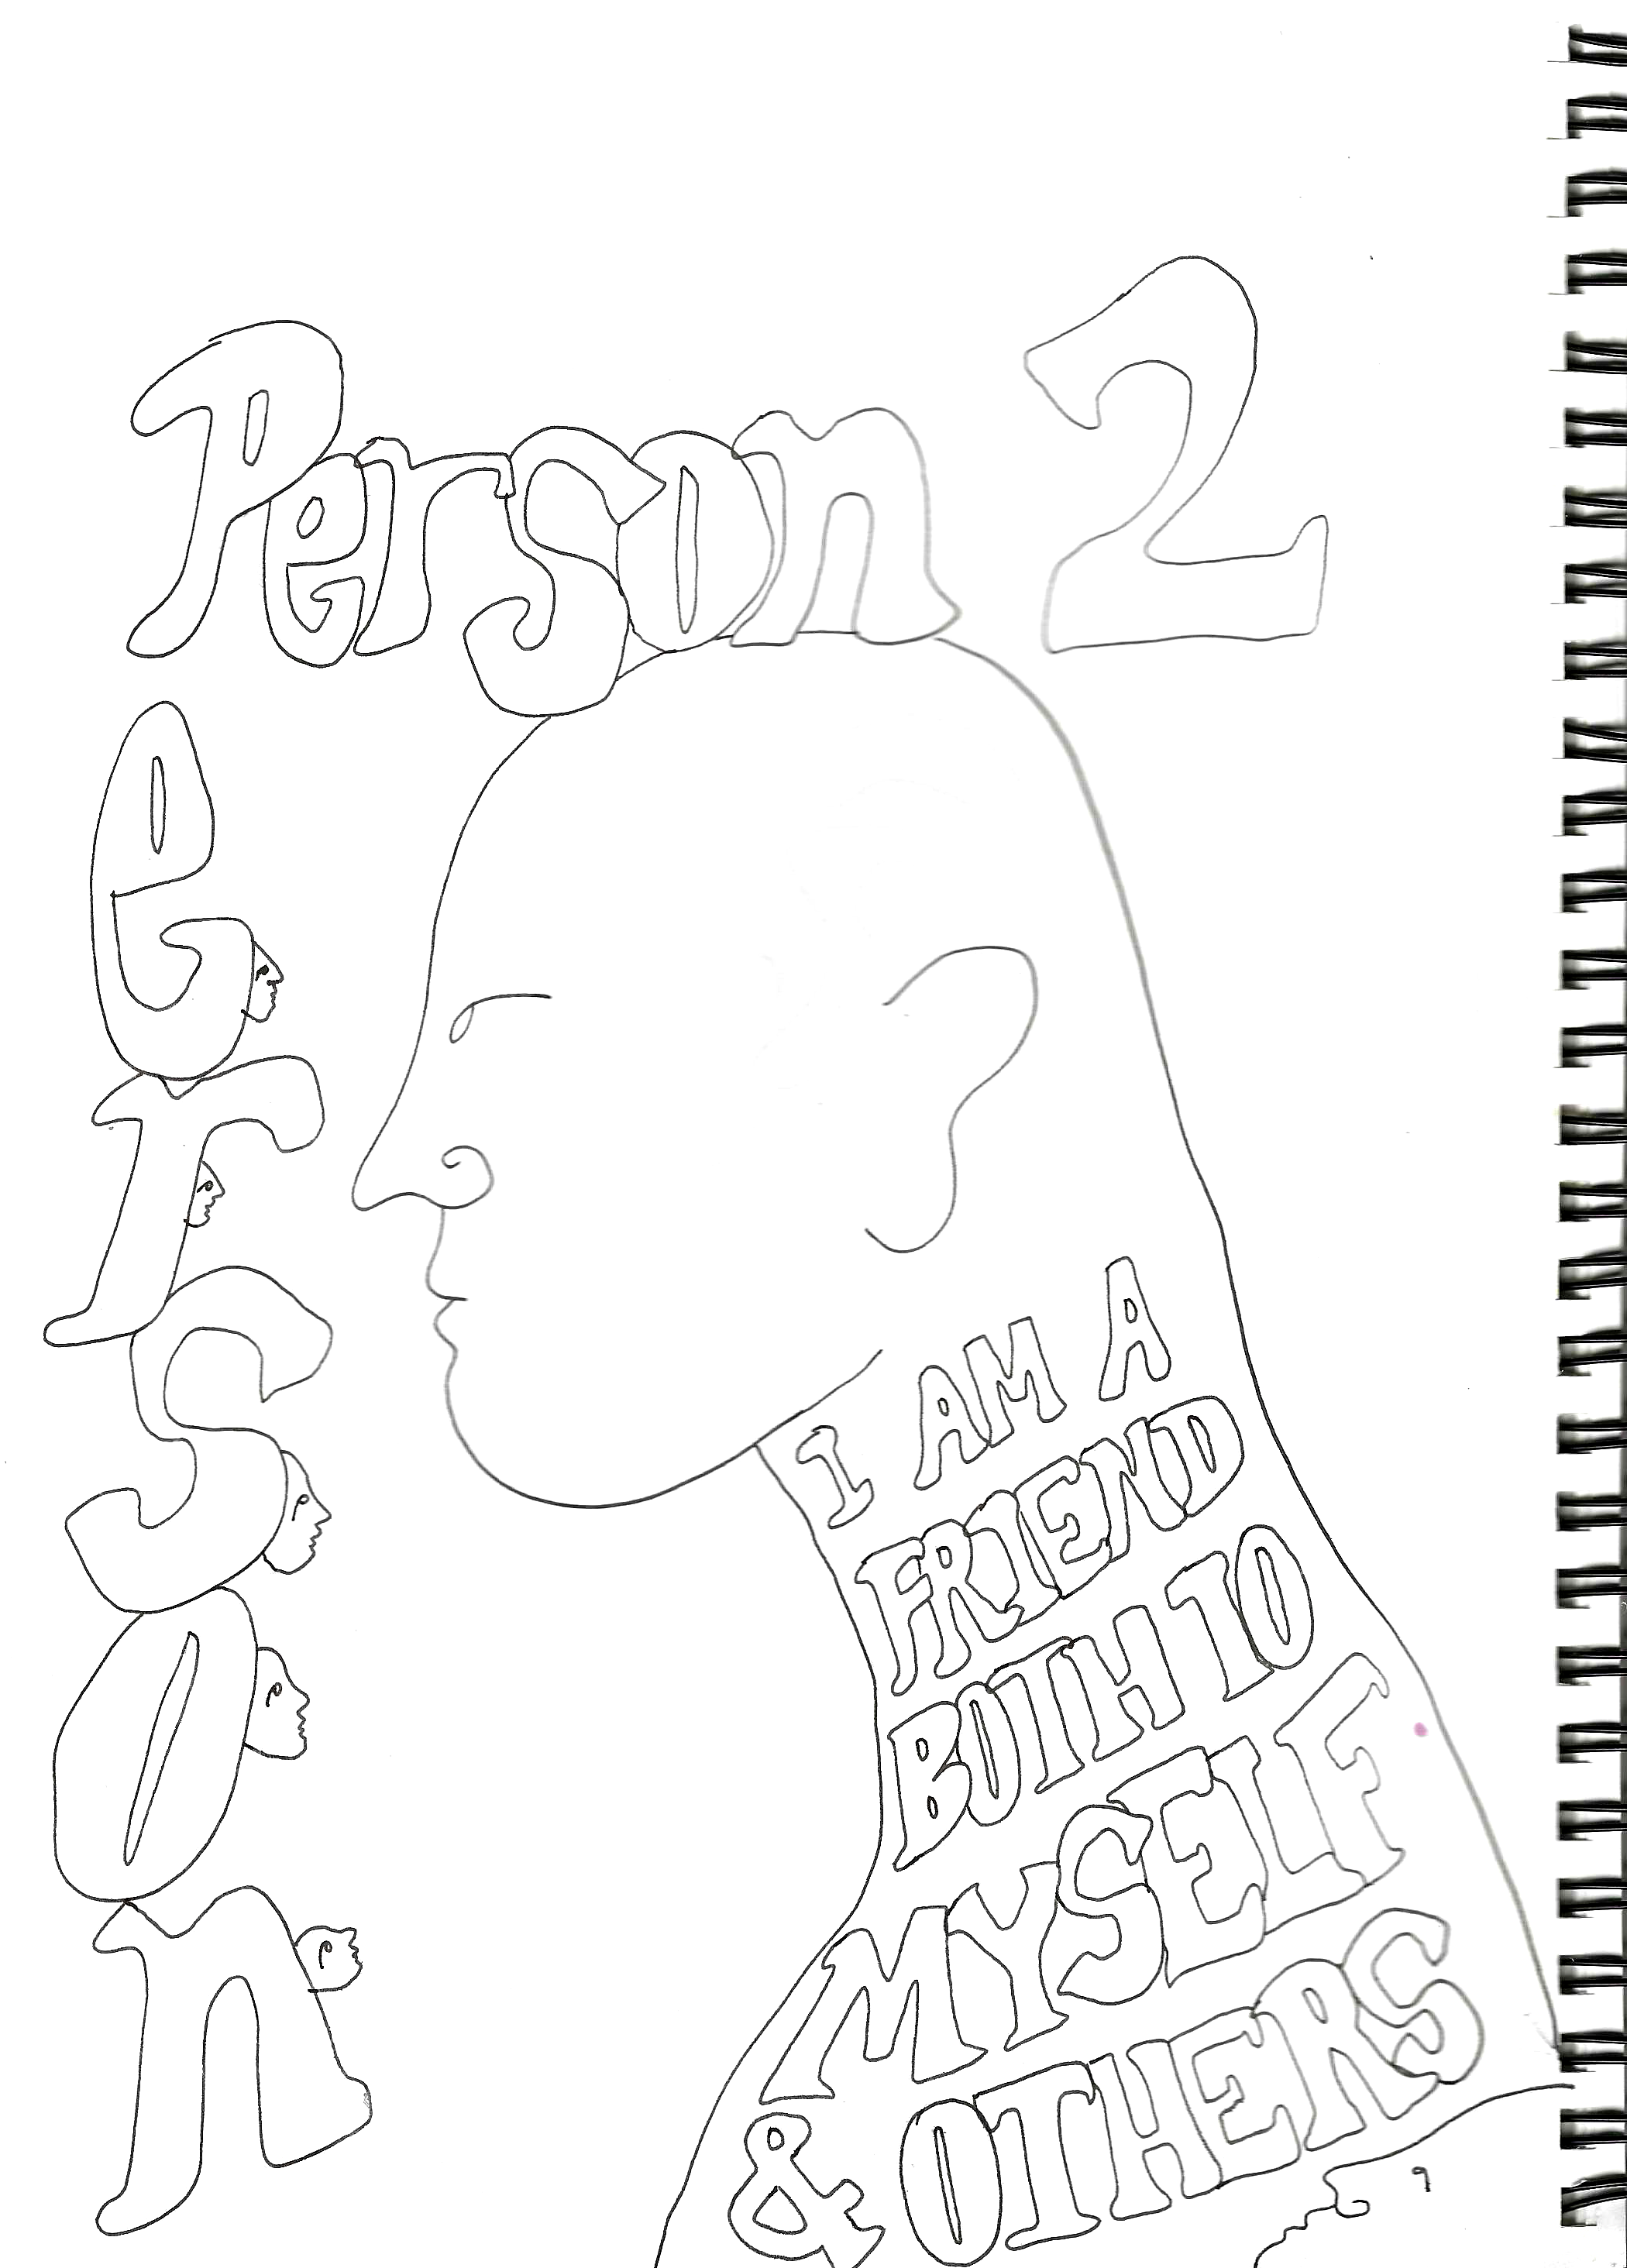 Person 2
erson
I AM A
FRIEND
BOTH TO
MYSELF
& OTHERS